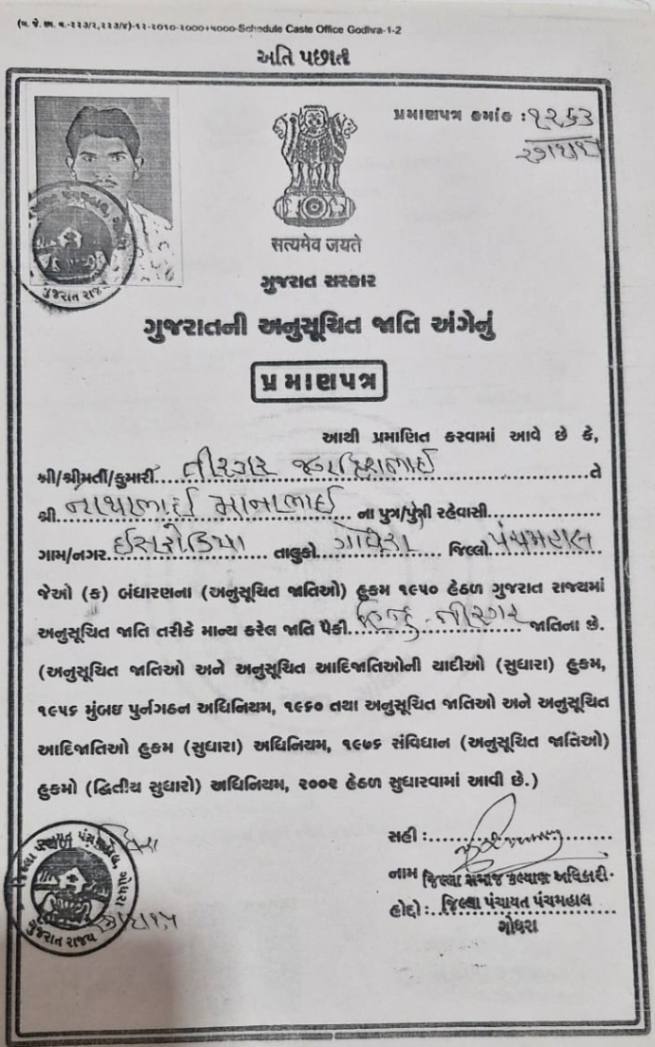 (ય. જે. છા. વ.-૨૨૩/૨,૨૨૩/૪)-૧૨-૨૦૧૦-૨૦૦૦+૫૦૦૦-Schedule Caste Office Godhra-1-2
અતિ પછાત
પ્રમાણપત્ર ક્રમાંક : ૧૨૬૩
સત્યમેવ જયતે
ગુજરાત સરકાર
ગુજરાતની અનુસૂચિત જાતિ અંગેનું
પ્રમાણપત્ર
આથી પ્રમાણિત કરવામાં આવે છે કે,
શ્રી/શ્રીમતી/કુમારી. તીરગર જગદિશભાઈ તે
શ્રી. નાથાભાઈ માનાભાઈ ના પુત્ર/પુત્રી રહેવાસી
ગામ/નગર ઈસરોડિયા તાલુકો ગોધરા જિલ્લો પંચમહાલ
જેઓ (ક) બંધારણના (અનુસૂચિત જાતિઓ) હુકમ ૧૯૫૦ હેઠળ ગુજરાત રાજ્યમાં
અનુસૂચિત જાતિ તરીકે માન્ય કરેલ જાતિ પૈકી હિન્દુ-તીરગર જાતિના છે.
(અનુસૂચિત જાતિઓ અને અનુસૂચિત આદિજાતિઓની યાદીઓ (સુધારા) હુકમ,
૧૯૫૬ મુંબઇ પુર્નગઠન અધિનિયમ, ૧૯૬૦ તથા અનુસૂચિત જાતિઓ અને અનુસૂચિત
આદિજાતિઓ હુકમ (સુધારા) અધિનિયમ, ૧૯૭૬ સંવિધાન (અનુસૂચિત જાતિઓ)
હુકમો (દ્વિતીય સુધારો) અધિનિયમ, ૨૦૦૨ હેઠળ સુધારવામાં આવી છે.)
સહી :
નામ જિલ્લા સમાજ કલ્યાણ અધિકારી
હોદ્દો : જિલ્લા પંચાયત પંચમહાલ
ગોધરા
જિલ્લા પંચાયત પંચમહાલ, ગોધરા
ગુજરાત રાજ્ય